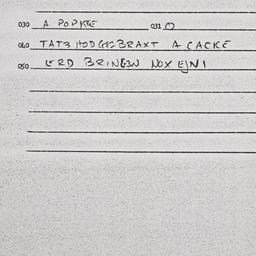 030 A POPKTE 031 O
040 TAT3 HODGK2BRAXT A CACKE
050 ERD BRINGEN NOX EJNI